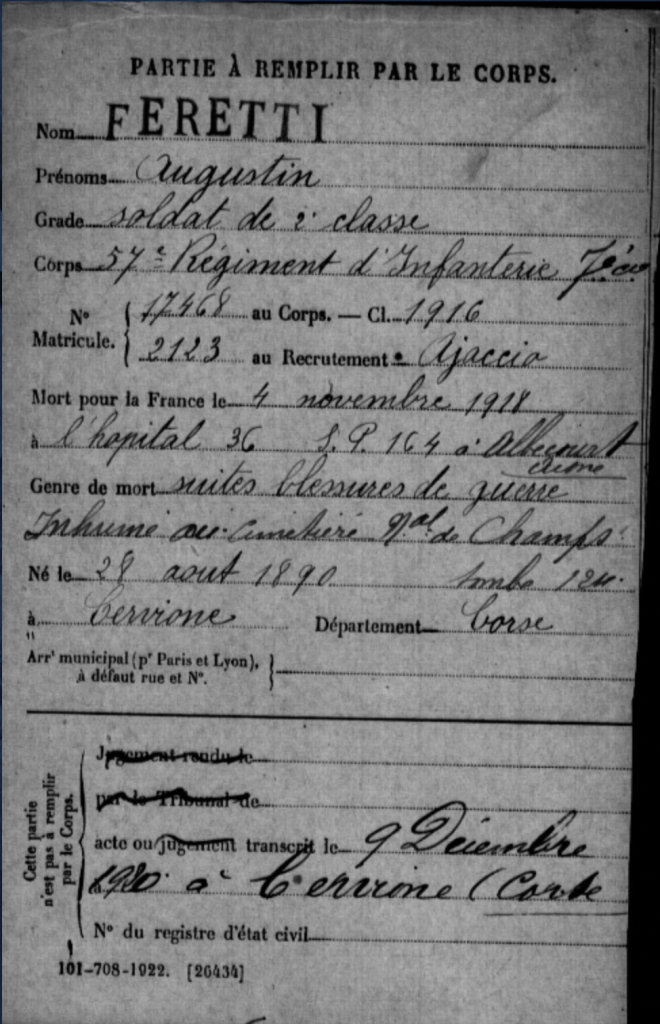 PARTIE À REMPLIR PAR LE CORPS.
Nom FERETTI
Prénoms Augustin
Grade soldat de 2e classe
Corps 57e Régiment d'Infanterie 7e cie
No Matricule. 17468 au Corps. — Cl. 1916
2123 au Recrutement Ajaccio
Mort pour la France le 4 novembre 1918
à l'hopital 36 S. P. 164 à
Aisne
Genre de mort suites blessures de guerre
Inhumé au cimetière Nal de Champs
Né le 28 aout 1890 tombe 124.
à Cervione Département Corse
Arrt municipal (pr Paris et Lyon),
à défaut rue et No.
Cette partie
n'est pas à remplir
par le Corps.
Jugement rendu le
par le Tribunal de
acte ou jugement transcrit le 9 Décembre
1920 à Cervione (Corse
No du registre d'état civil
101-708-1922. [26434]